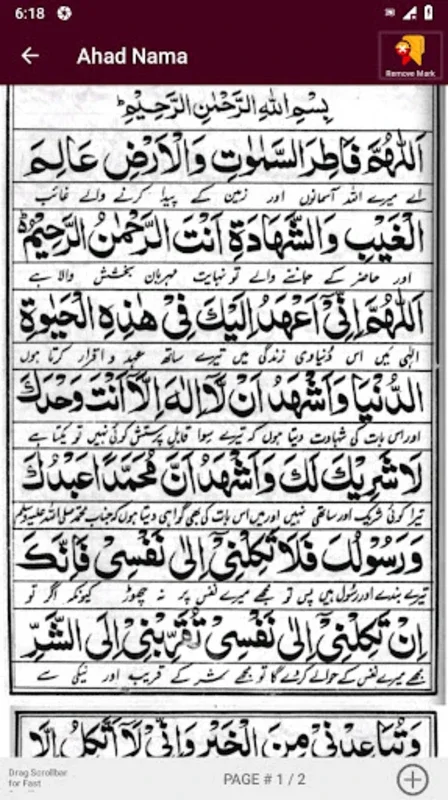 6:18
Ahad Nama
Remove Mark
بِسْمِ اللهِ الرَّحْمٰنِ الرَّحِيْمِ
اَللّٰهُمَّ فَاطِرَ السَّمٰوٰتِ وَالْاَرْضِ عَالِمَ
اے میرے اللہ آسمانوں اور زمین کے پیدا کرنے والے غائب
الْغَيْبِ وَالشَّهَادَةِ اَنْتَ الرَّحْمٰنُ الرَّحِيْمُ
اور حاضر کے جاننے والے تو نہایت مہربان بخشش والا ہے
اَللّٰهُمَّ اِنِّىْ اَعْهَدُ اِلَيْكَ فِىْ هٰذِهِ الْحَيٰوةِ
الٰہی میں اس دُنیاوی زندگی میں تیرے ساتھ عہد و اقرار کرتا ہوں
الدُّنْيَا وَاَشْهَدُ اَنْ لَّا اِلٰهَ اِلَّا اَنْتَ وَحْدَكَ
اور اس بات کی شہادت دیتا ہوں کہ تیرے سوا قابلِ پرستش کوئی نہیں تو یکتا ہے
لَا شَرِيْكَ لَكَ وَاَشْهَدُ اَنَّ مُحَمَّدًا عَبْدُكَ
تیرا کوئی شریک اور ساتھی نہیں اور میں اس بات کی بھی گواہی دیتا ہوں کہ جناب محمد صلی اللہ علیہ وسلم
وَرَسُوْلُكَ فَلَا تَكِلْنِىْ اِلٰى نَفْسِىْ فَاِنَّكَ
تیرے بندے اور رسول ہیں پس تو مجھے میرے نفس پر نہ چھوڑ کیونکہ اگر تو
اِنْ تَكِلْنِىْ اِلٰى نَفْسِىْ تُقَرِّبْنِىْ اِلَى الشَّرِّ
مجھے میرے نفس کے حوالے کر دے گا تو مجھے شر کے قریب اور نیکی سے
وَتُبَاعِدْنِىْ مِنَ الْخَيْرِ وَاِنِّىْ لَا اَتَّكِلُ اِلَّا
Drag Scrollbar
for Fast
PAGE # 1 / 2